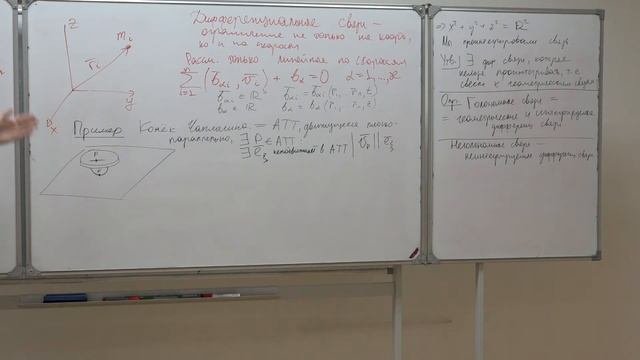 Дифференциальные связи –
ограничение не только на коорд.,
но и на скорости
Рассм. только линейные по скоростям
n
∑ (b̄αi, v̄i) + bα = 0   α = 1,...,
i=1
b̄αi ∈ ℝ³   b̄αi = b̄αi (r̄1, r̄n, t)
bα ∈ ℝ   bα = bα (r̄1, r̄n, t)
Пример Конёк Чаплыгина = АТТ, движущееся плоско-
параллельно, ∃ P ∈ АТТ
∃ ēξ неподвижный в АТТ | v̄p ∥ ēξ
z
mi
r̄i
y
x
P
⇒ x² + y² + z² = R²
Мы проинтегрировали связь
Утв. ∃ диф связи, которые
нельзя проинтегрировать, т.е.
свести к геометрическим связям
Опр. Голономные связи =
= геометрические и интегрируемые
дифференц связи
Неголономные связи –
неинтегрируемые дифференц связи